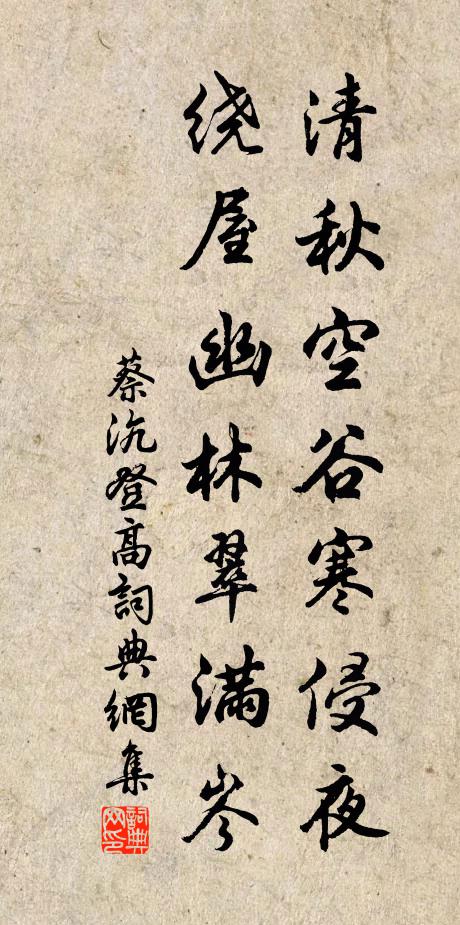 清秋空谷寒侵夜
绕屋幽林翠满岑
蔡沆登高詞典網集
詞典網印